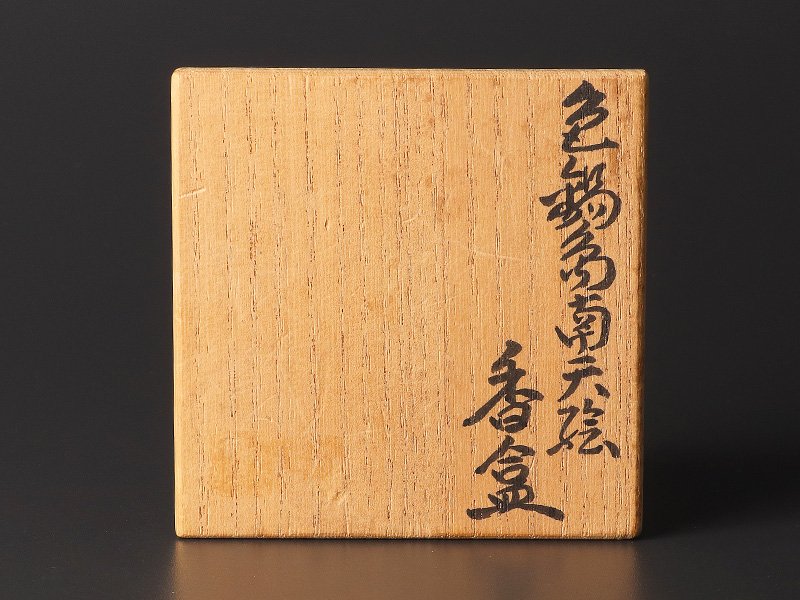 色鍋島南天絵
香盒